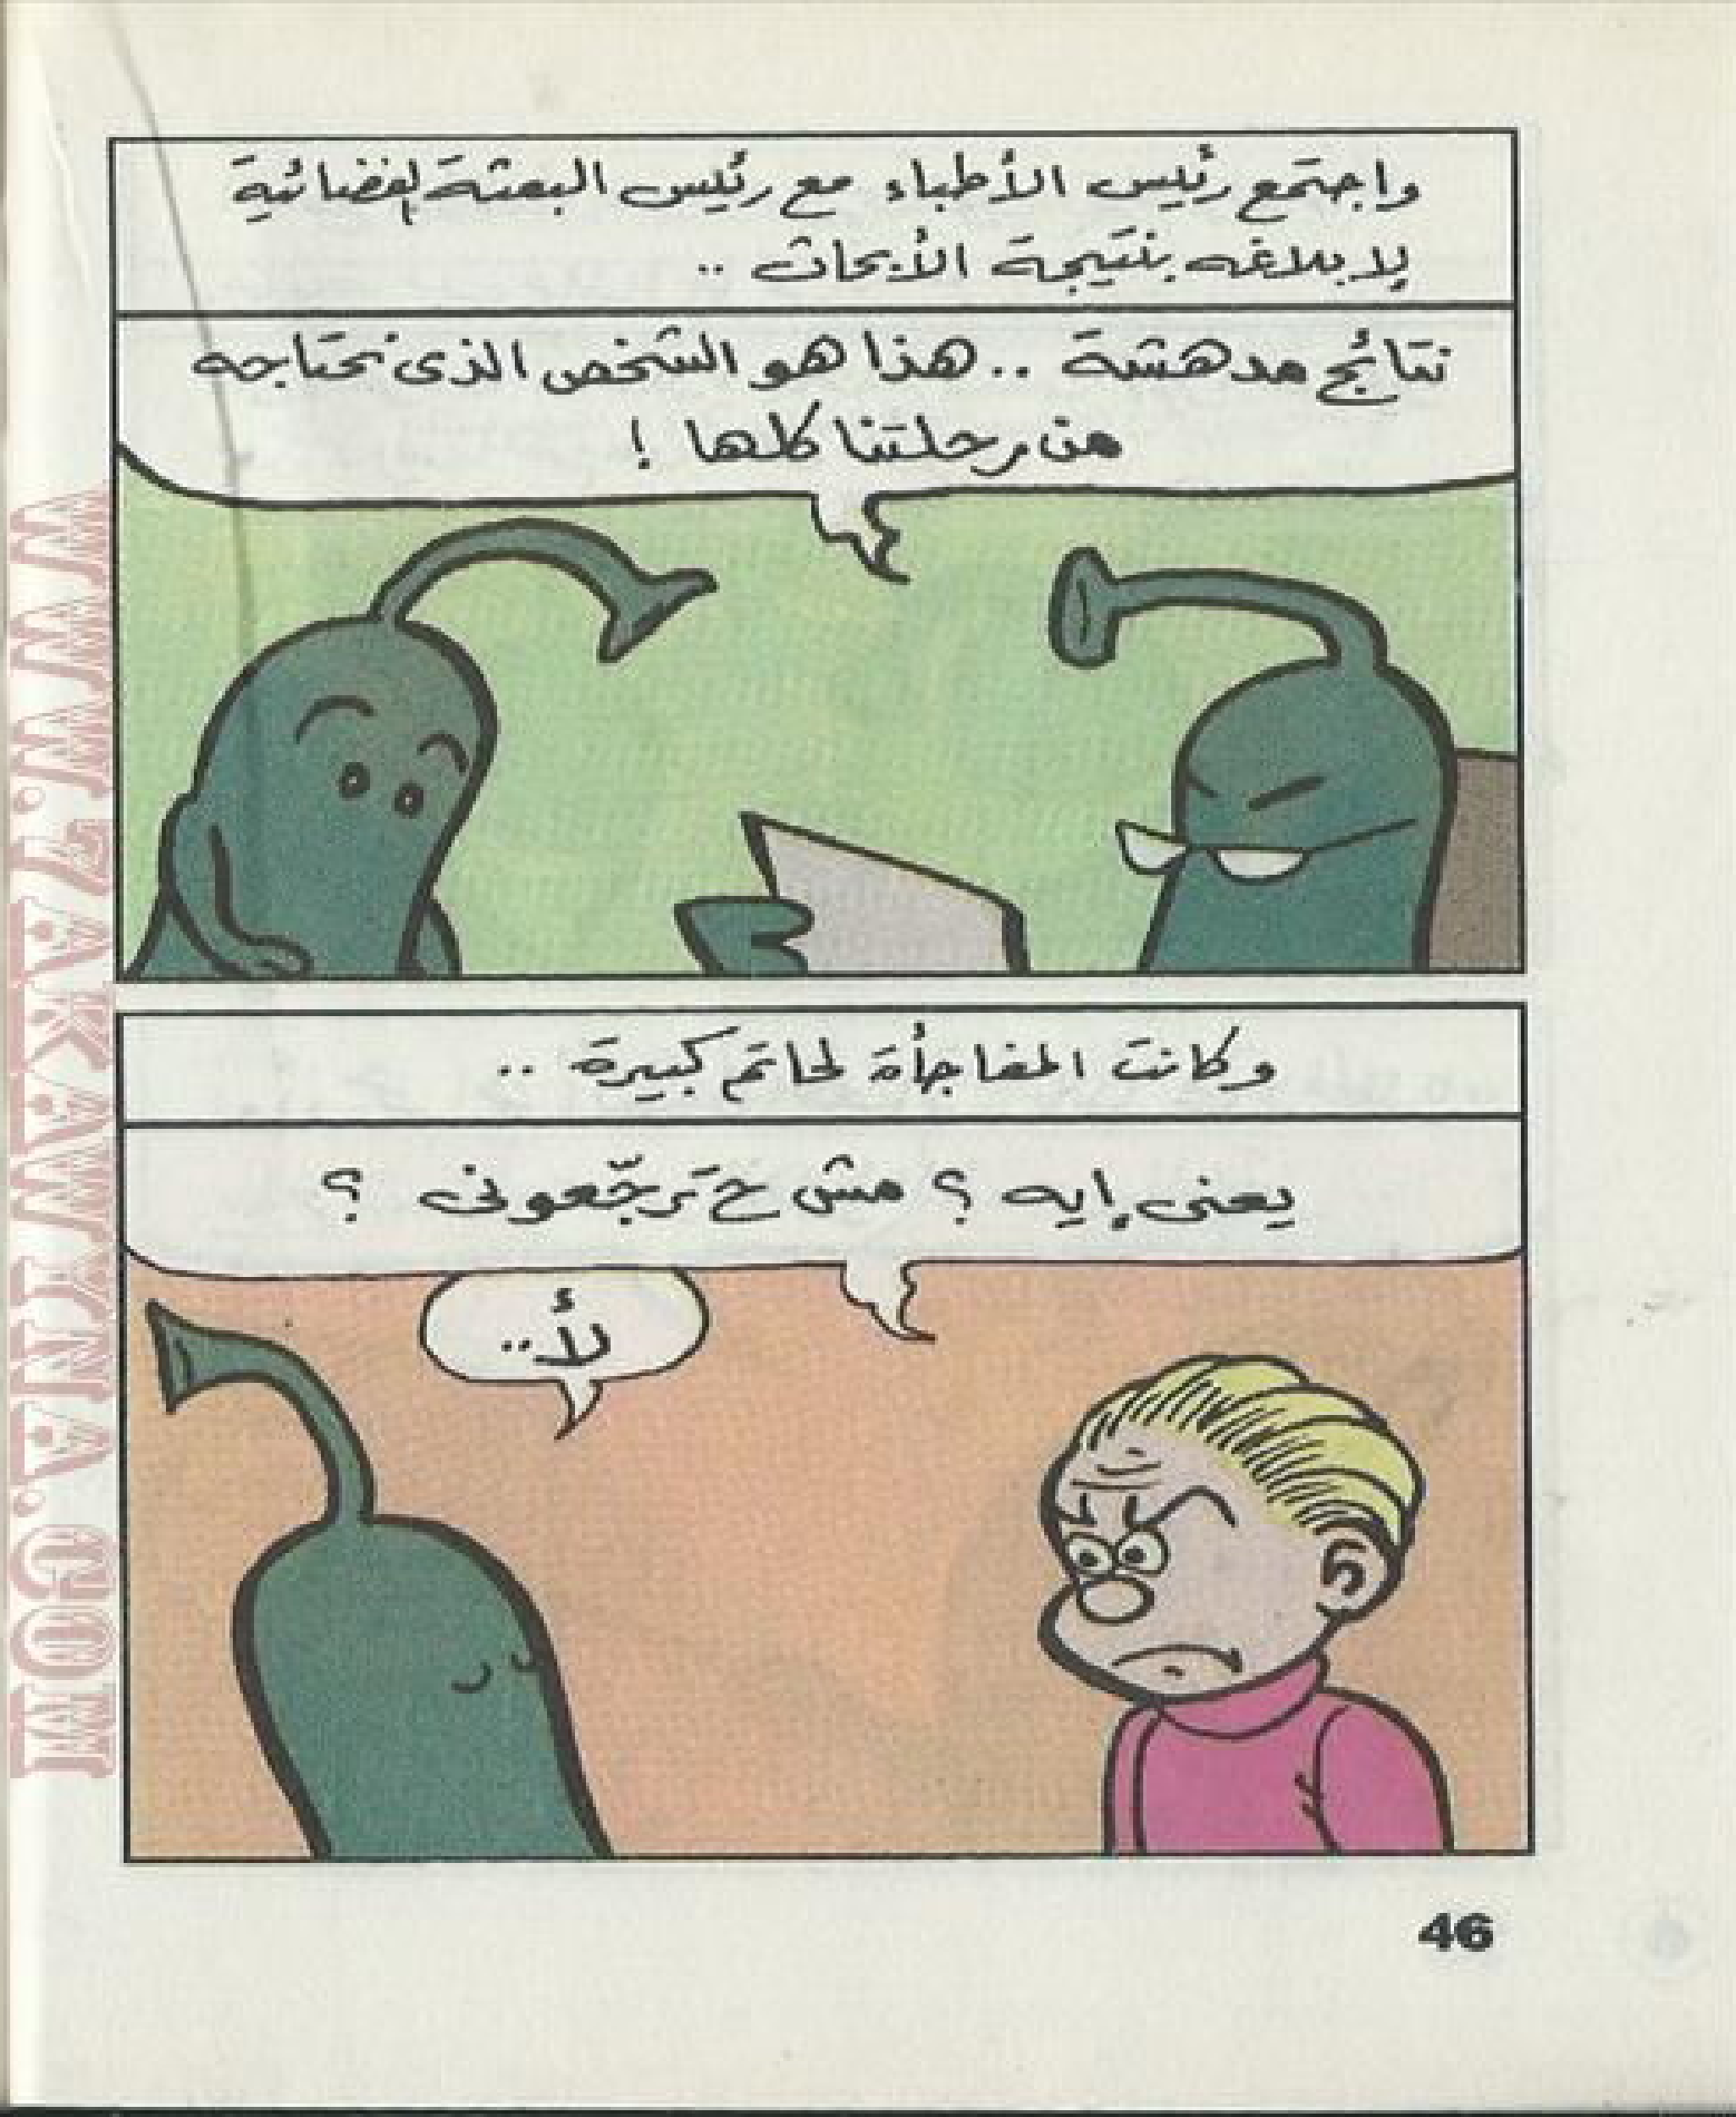 واجتمع رئيس الأطباء مع رئيس البعثة الفضائية
لإبلاغه بنتيجة الأبحاث ..
نتائج مدهشة .. هذا هو الشخص الذى نحتاجه
من رحلتنا كلها !
وكانت المفاجأة لحاتم كبيرة ..
يعنى إيه ؟ مش ح ترجّعونى ؟
لأ ..
46
WWW.ZAKAWKNA.COM